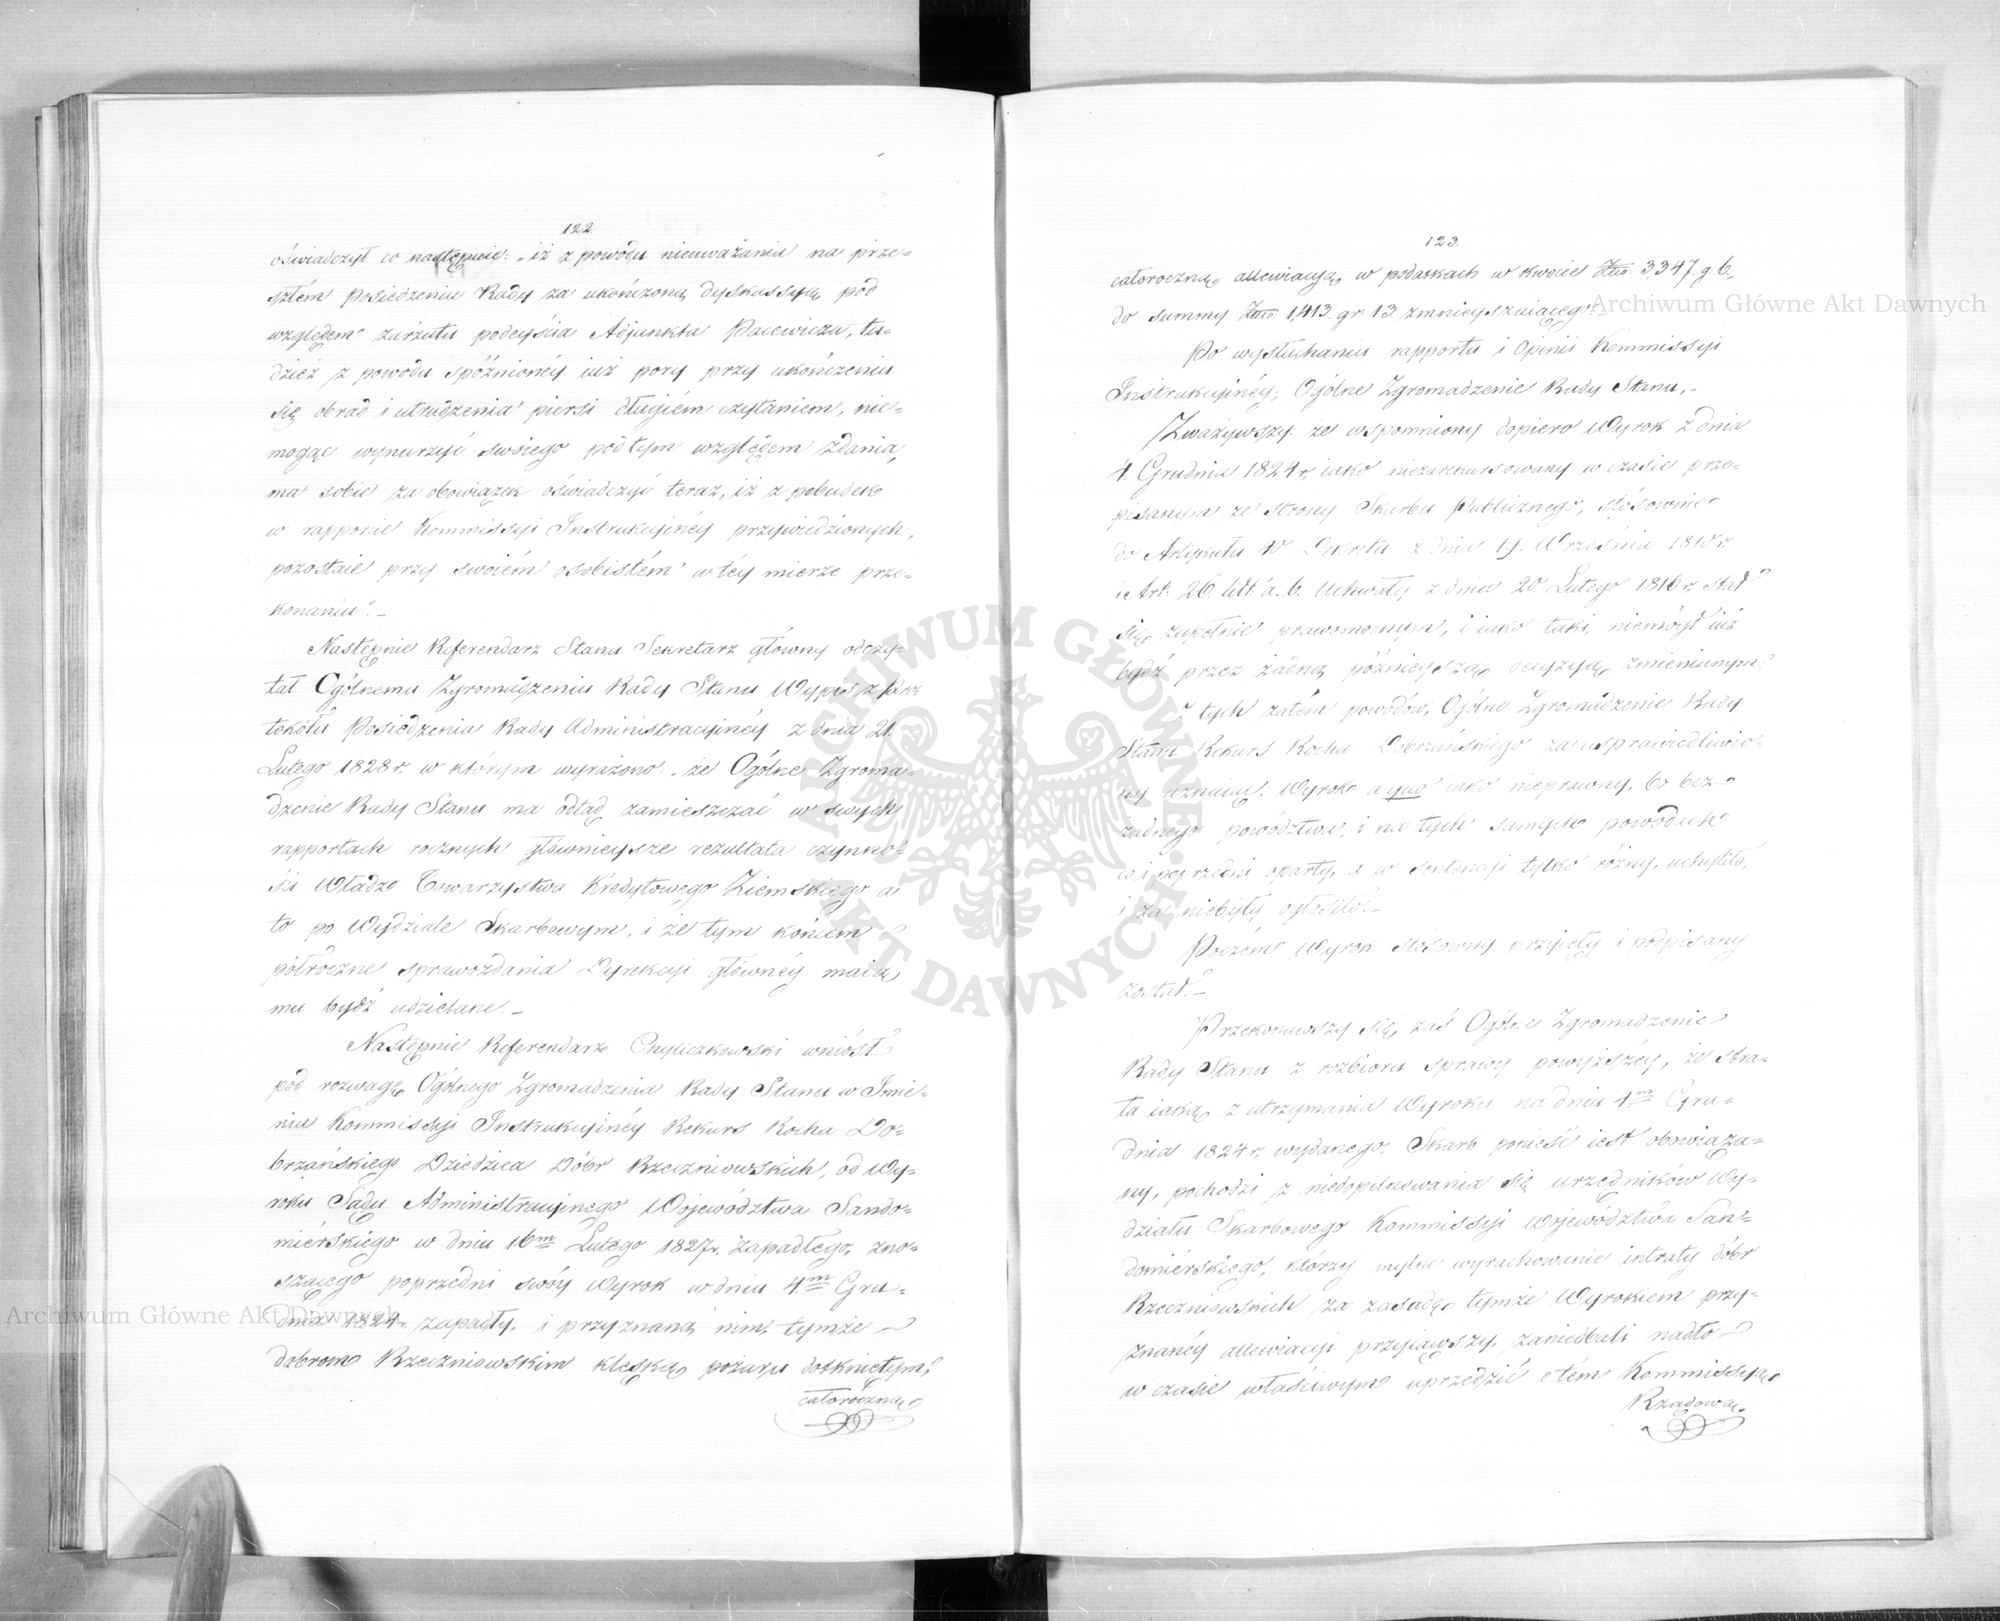 122
oświadczył co następuie: „iż z powodu nieuważania na prze-
szłém Posiedzeniu Rady za ukończoną dyskussyą pod
względem zarzutu podeyścia Adjunkta Pacewicza, tu-
dzież z powodu spóźnionéy iuż pory przy ukończeniu
się obrad i utrudzenia piersi długiém czytaniem, nie-
mogąc wynurzyć swoiego pod tym względem zdania,
ma sobie za obowiązek oświadczyć teraz, iż z pobudek
w rapporcie Kommissyi Instrukcyinéy przywiedzionych,
pozostaie przy swoiém osobistém w téy mierze prze-
konaniu". –
Następnie Referendarz Stanu Sekretarz główny odczy-
tał Ogólnemu Zgromadzeniu Rady Stanu Wypis z Pro-
tokółu Posiedzenia Rady Administracyinéy z dnia 21.
Lutego 1828 r. w którym wyrażono: „że Ogólne Zgroma-
dzenie Rady Stanu ma odtąd zamieszczać w swych
rapportach rocznych głównieysze rezultata czynno-
ści Władz Towarzystwa Kredytowego Ziemskiego a
to po Wydziale Skarbowym, i że tym końcem
półroczne sprawozdania Dyrekcyi główney maią
mu bydź udzielane. –
Następnie Referendarz Chyliczkowski wniósł
pod rozwagę Ogólnego Zgromadzenia Rady Stanu w Imie-
niu Kommissyi Instrukcyinéy Rekurs Rocha Do-
brzańskiego Dziedzica Dóbr Rzeczniowskich, od Wy-
roku Sądu Administracyinego Województwa Sando-
mierskiego w dniu 16m Lutego 1827 r. zapadłego, zno-
szącego poprzedni swóy Wyrok w dniu 4m Gru-
dnia 1824 r. zapadły, i przyznaną nim, tymże
dobrom Rzeczniowskim klęską pożaru dotkniętym
całoroczną
123.
całoroczną allewiacyą w podatkach w kwocie Złtt: 3,347. g. 6.
do summy Złtt: 1,413. gr. 13 zmnieyszaiącego. –
Po wysłuchaniu rapportu i Opinii Kommissyi
Instrukcyinéy, Ogólne Zgromadzenie Rady Stanu, –
Zważywszy że wspomniony dopiero Wyrok z dnia
4. Grudnia 1824 r. iako niezarekursowany w czasie prze-
pisanym ze strony Skarbu Publicznego, stósownie
do Artykułu 40 Dekretu z dnia 19. Września 1810 r.
i Art: 26. litt. a. b. Uchwały z dnia 20. Lutego 1816 r. stał
się zupełnie prawomocnym, i iako taki, niemógł iuż
bydź przez żadną późnieyszą decyzyą zmienionym
Z tych zatém powodów, Ogólne Zgromadzenie Rady
Stanu Rekurs Rocha Dobrzańskiego za usprawiedliwio-
ny uznaiąc, Wyrok a quo iako nieprawny, bo bez
żadnego powództwa, i na tych samych powodach
co i poprzedni oparty, a w sentencyi tylko różny, uchyliło,
i za niebyły ogłosiło. –
Poczém Wyrok stósowny przyięty i podpisany
został. –
Przekonawszy się zaś Ogólne Zgromadzenie
Rady Stanu z rozbioru sprawy powyższéy, że stra-
ta iaką z utrzymania Wyroku na dniu 4m Gru-
dnia 1824 r. wydanego, Skarb ponieść iest obowiąza-
ny, pochodzi z niedopilnowania się urzędników Wy-
działu Skarbowego Kommissyi Województwa San-
domierskiego, którzy mylne wyrachowanie intraty dóbr
Rzeczniowskich za zasadę tymże Wyrokiem przy-
znanéy allewiacyi przyiąwszy, zaniedbali nadto
w czasie właściwym uprzedzić o tém Kommissyą
Rządową
Archiwum Główne Akt Dawnych
Archiwum Główne Akt Dawnych
ARCHIWUM GŁÓWNE AKT DAWNYCH